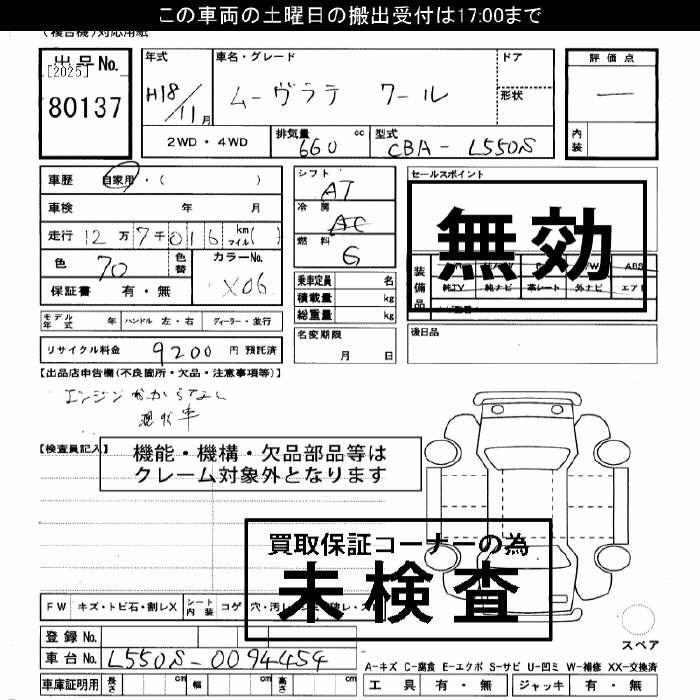 この車両の土曜日の搬出受付は17:00まで
(複合機)対応用紙
出品No.
[2025]
80137
年式
H18/11月
車名・グレード
ムーヴラテ クール
ドア
形状
評価点
—
内装
2WD・4WD
排気量 660 cc
型式 CBA-L550S
車歴 自家用・( )
車検 年 月
走行 12万7千016 km マイル( )
色 70
色替
カラーNo. X06
保証書 有・無
シフト AT
冷房 AC
燃料 G
セールスポイント
無効
装備品
ABS
純TV 純ナビ 革シート 外ナビ エアB
乗車定員 名
積載量 kg
総重量 kg
モデル年式 年 ハンドル 左・右 ディーラー・並行
名変期限
月 日
後日品
リサイクル料金 9200 円 預託済
【出品店申告欄(不良箇所・欠品・注意事項等)】
エンジンかからなし
現状車
【検査員記入】
機能・機構・欠品部品等は
クレーム対象外となります
買取保証コーナーの為
未検査
FW キズ・トビ石・割レX シート内装 コゲ 穴・汚レ
スペア
登録No.
車台No. L550S-0094454
A-キズ C-腐食 E-エクボ S-サビ U-凹ミ W-補修 XX-交換済
車庫証明用 長さ cm 幅 cm 高さ cm
工具 有・無 ジャッキ 有・無